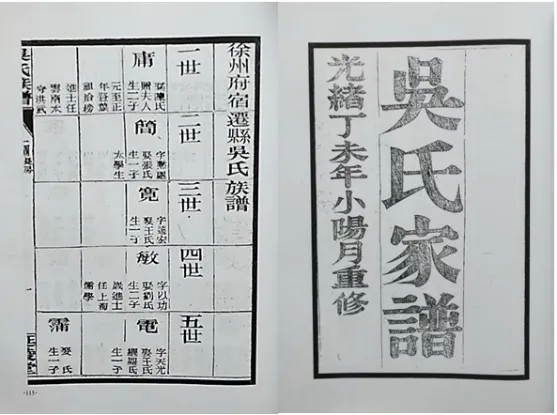 吳氏家譜
光緒丁未年小陽月重修
徐州府宿遷縣吳氏族譜
一世
庸
娶陳氏
贈夫人
生二子
元至正
年註葉
祖拾榜
進士任
雲南太
守洪武
二世
簡
娶張氏
生一子
太學生
三世
寬
字遠宏
娶王氏
生一子
四世
敏
字以功
娶劉氏
生二子
歲進士
任上海
儒學
五世
電
字天光
娶王氏
繼羅氏
生一子
霈
娶 氏
生一子
吳氏族譜
·115·